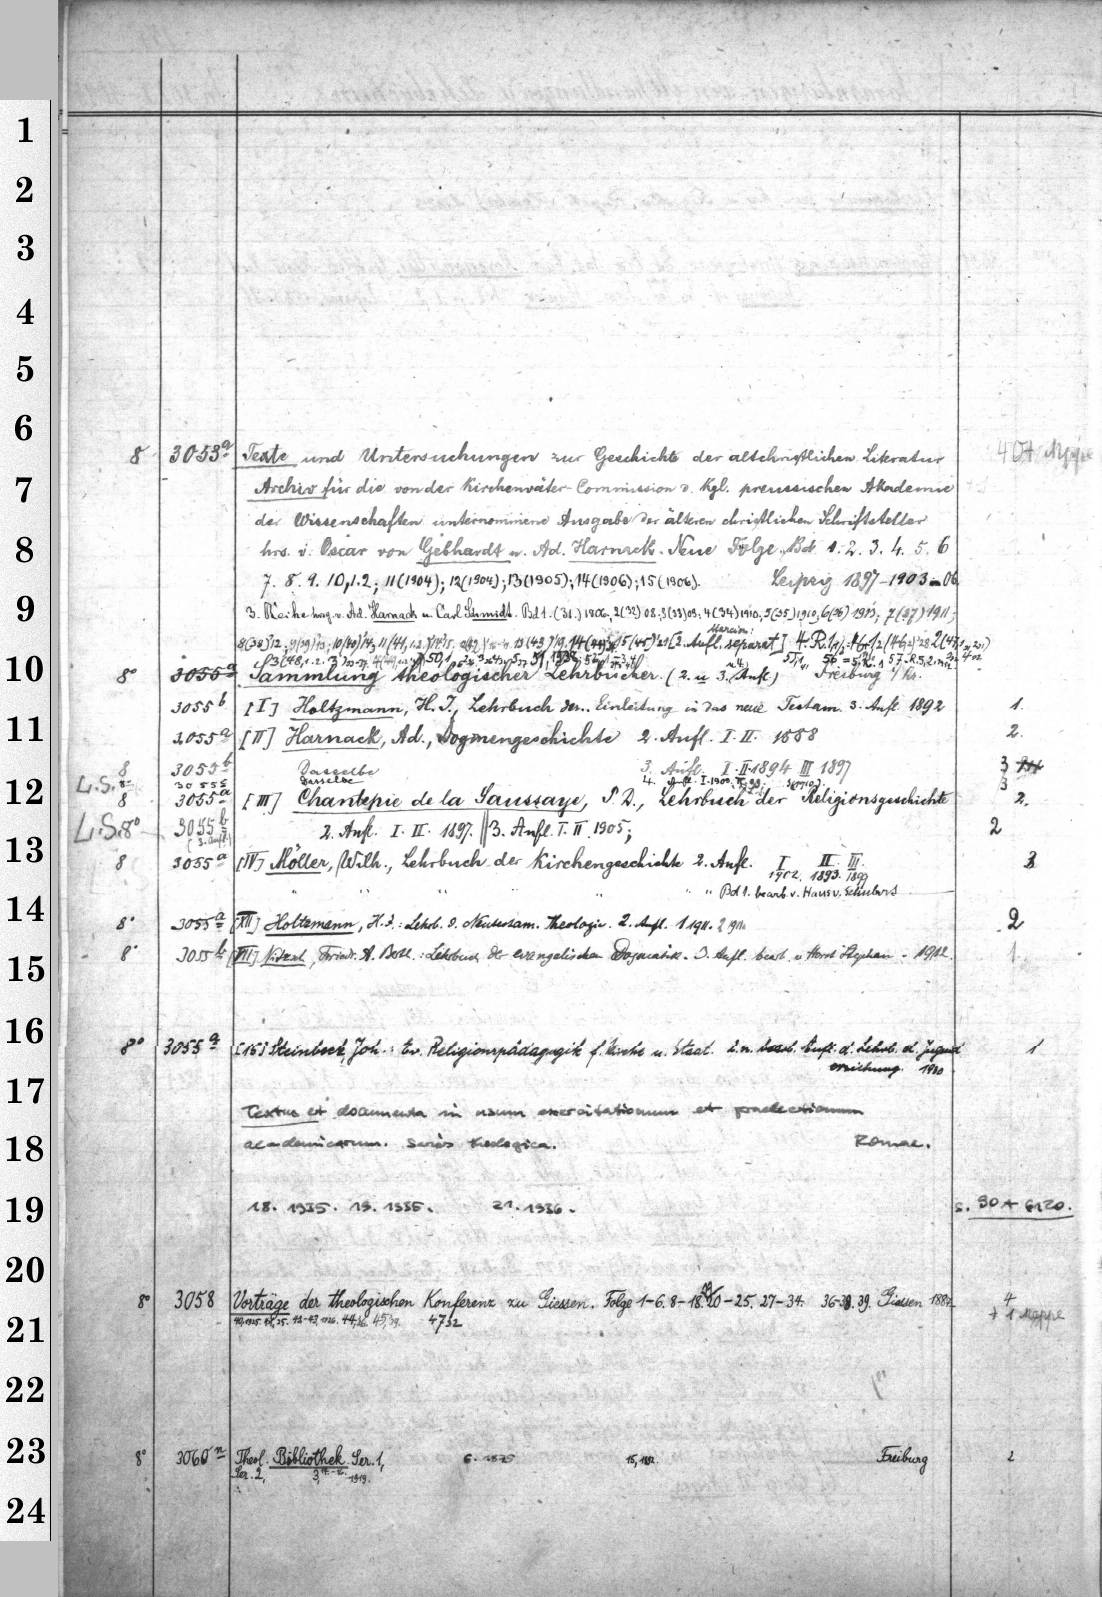 1
2
3
4
5
6
8 3053a Texte und Untersuchungen zur Geschichte der altchristlichen Literatur
7 Archiv für die von der Kirchenväter-Commission d. Kgl. preussischen Akademie
der Wissenschaften unternommene Ausgabe der älteren christlichen Schriftsteller
8 hrs. v. Oscar von Gebhardt u. Ad. Harnack. Neue Folge. Bd. 1. 2. 3. 4. 5. 6
7. 8. 9. 10,1.2; 11(1904); 12(1904); 13(1905); 14(1906); 15(1906). Leipzig 1897-1903-06
9 3. Reihe hrsg. v. Ad. Harnack u. Carl Schmidt. Bd 1. (31.) 1906, 2(32) 08. 3(33)09; 4(34)1910, 5(35)1910, 6(36) 1910; 7(37)1911;
10 8° 3055a Sammlung theologischer Lehrbücher. (2. u 3. Aufl.) Freiburg
3055b [I] Holtzmann, H. J., Lehrbuch der.. Einleitung in das neue Testam. 3. Aufl 1892 1.
11 3055a [II] Harnack, Ad., Dogmengeschichte 2. Aufl. I. II. 1888 2.
8 3055b Dasselbe 3. Aufl. I. II. 1894 III 1897 3
Dasselbe 3
12 L.S. 8° 8 3055a [III] Chantepie de la Saussaye, P. D., Lehrbuch der Religionsgeschichte 2.
L.S. 8° 3055b 2. Aufl. I. II. 1897. 3. Aufl. I. II 1905; 2
(3. Aufl.)
13 8 3055a [IV] Möller, Wilh., Lehrbuch der Kirchengeschichte 2. Aufl. I II. III. 3
1902. 1893. 1899
" " " " " " " Bd 1. bearb. v. Hans v. Schubert
14 8° 3055a [XII] Holtzmann, H. J.: Lehrb. d. Neutestam. Theologie. 2. Aufl. 1 1911. 2 1911 2
15 8° 3055b Nitzsch, Friedr. A. Berth.: Lehrbuch der evangelischen Dogmatik. 3. Aufl. bearb. v Horst Stephan. - 1912. 1
16 8° 3055a [15] Steinbeck, Joh.: Ev. Religionspädagogik f. Kirche u. Staat. Aufl. d. Lehrb. d. Jugend 1
erziehung.
17 Textus et documenta in usum exercitationum et praelectionum
18 academicarum. Series theologica. Romae.
19 18. 1935. 19. 1935. 21. 1936. s. 90 A 6120.
20
8° 3058 Vorträge der theologischen Konferenz zu Giessen. Folge 1-6. 8-18. 20-25. 27-34. 36-38. 39. Giessen 1887 4
21 + 1 Mappe
22
23 8° 3060n Theol. Bibliothek Ser. 1, 6. 1875 Freiburg 2
Ser. 2, 1919.
24